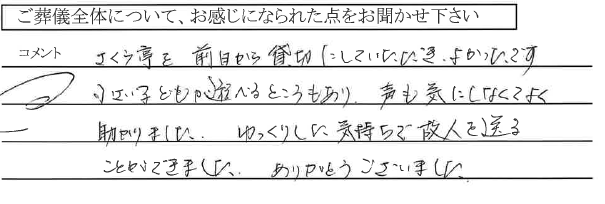 ご葬儀全体について、お感じになられた点をお聞かせ下さい
コメント さくら亭を前日から貸切にしていただき、よかったです
小さい子どもが遊べるところもあり、声も気にしなくてよく
助かりました。ゆっくりした気持ちで故人を送る
ことができました。ありがとうございました。